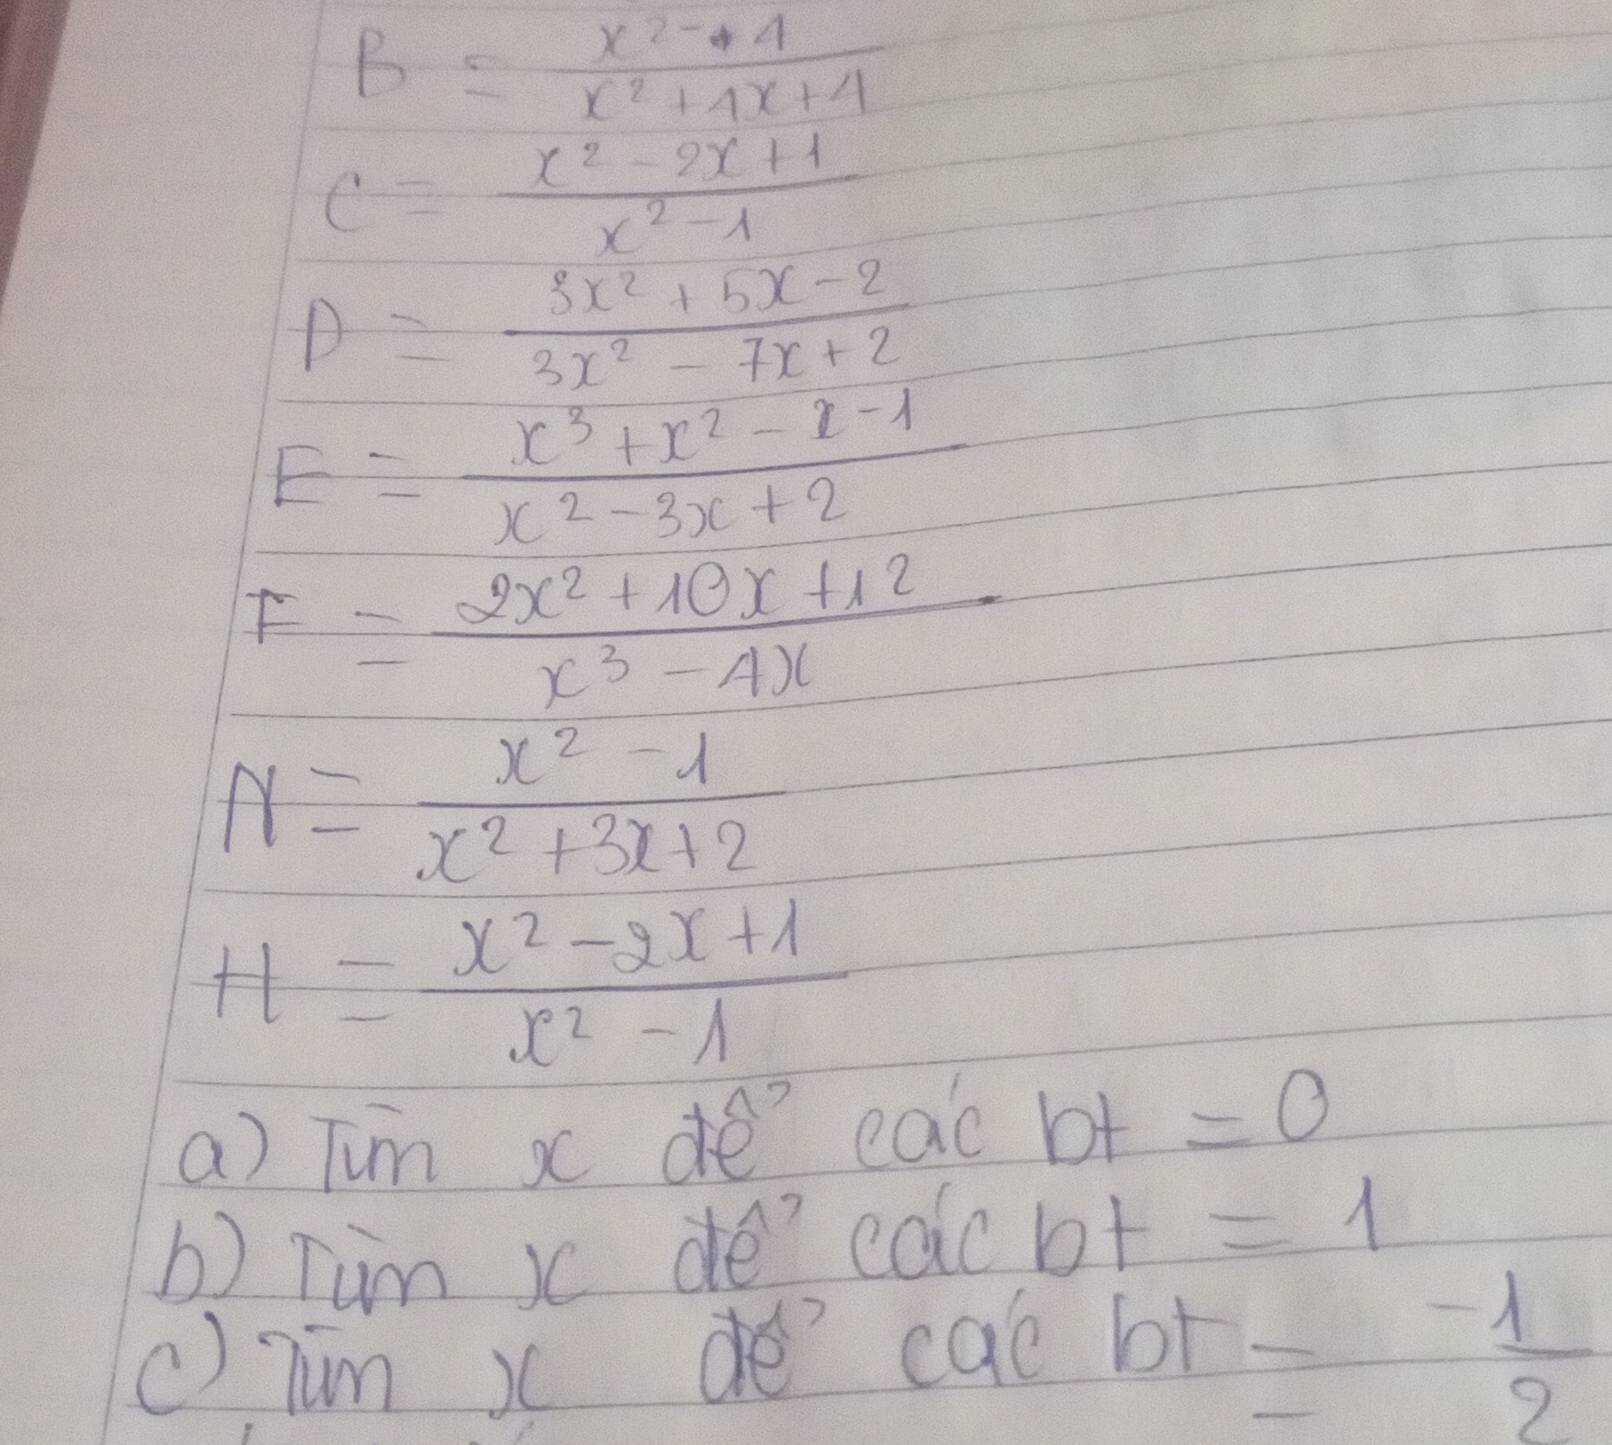 B = \frac{x^2 - 4}{x^2 + 4x + 4}
C = \frac{x^2 - 2x + 1}{x^2 - 1}
D = \frac{3x^2 + 5x - 2}{3x^2 - 7x + 2}
E = \frac{x^3 + x^2 - x - 1}{x^2 - 3x + 2}
F = \frac{2x^2 + 10x + 12}{x^3 - 4x}
N = \frac{x^2 - 1}{x^2 + 3x + 2}
H = \frac{x^2 - 2x + 1}{x^2 - 1}
a) Tìm x để các bt = 0
b) Tìm x để các bt = 1
c) Tìm x để các bt = \frac{-1}{2}